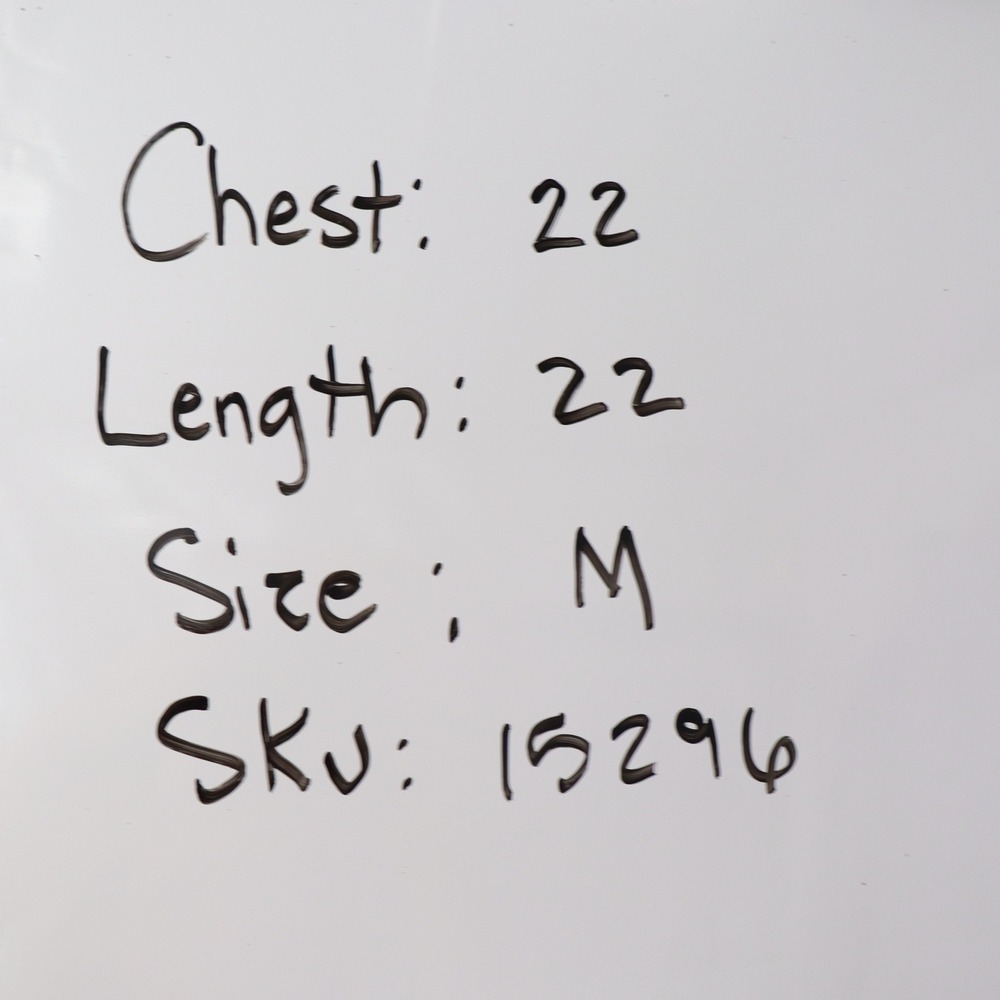 Chest: 22
Length: 22
Size: M
SKU: 15296